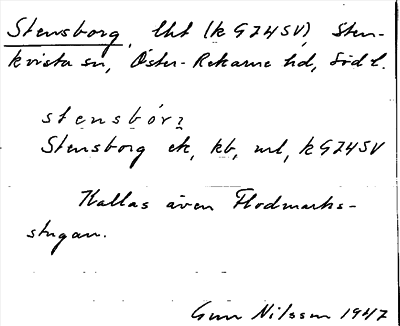 Stensborg, lht (k G74SV) Sten-
kvista sn, Öster-Rekarne hd, Södl.
stensbórj
Stensborg ek, kb, ml, k G74SV
Kallas även Flodmarks-
stugan.
Gun Nilsson 1947